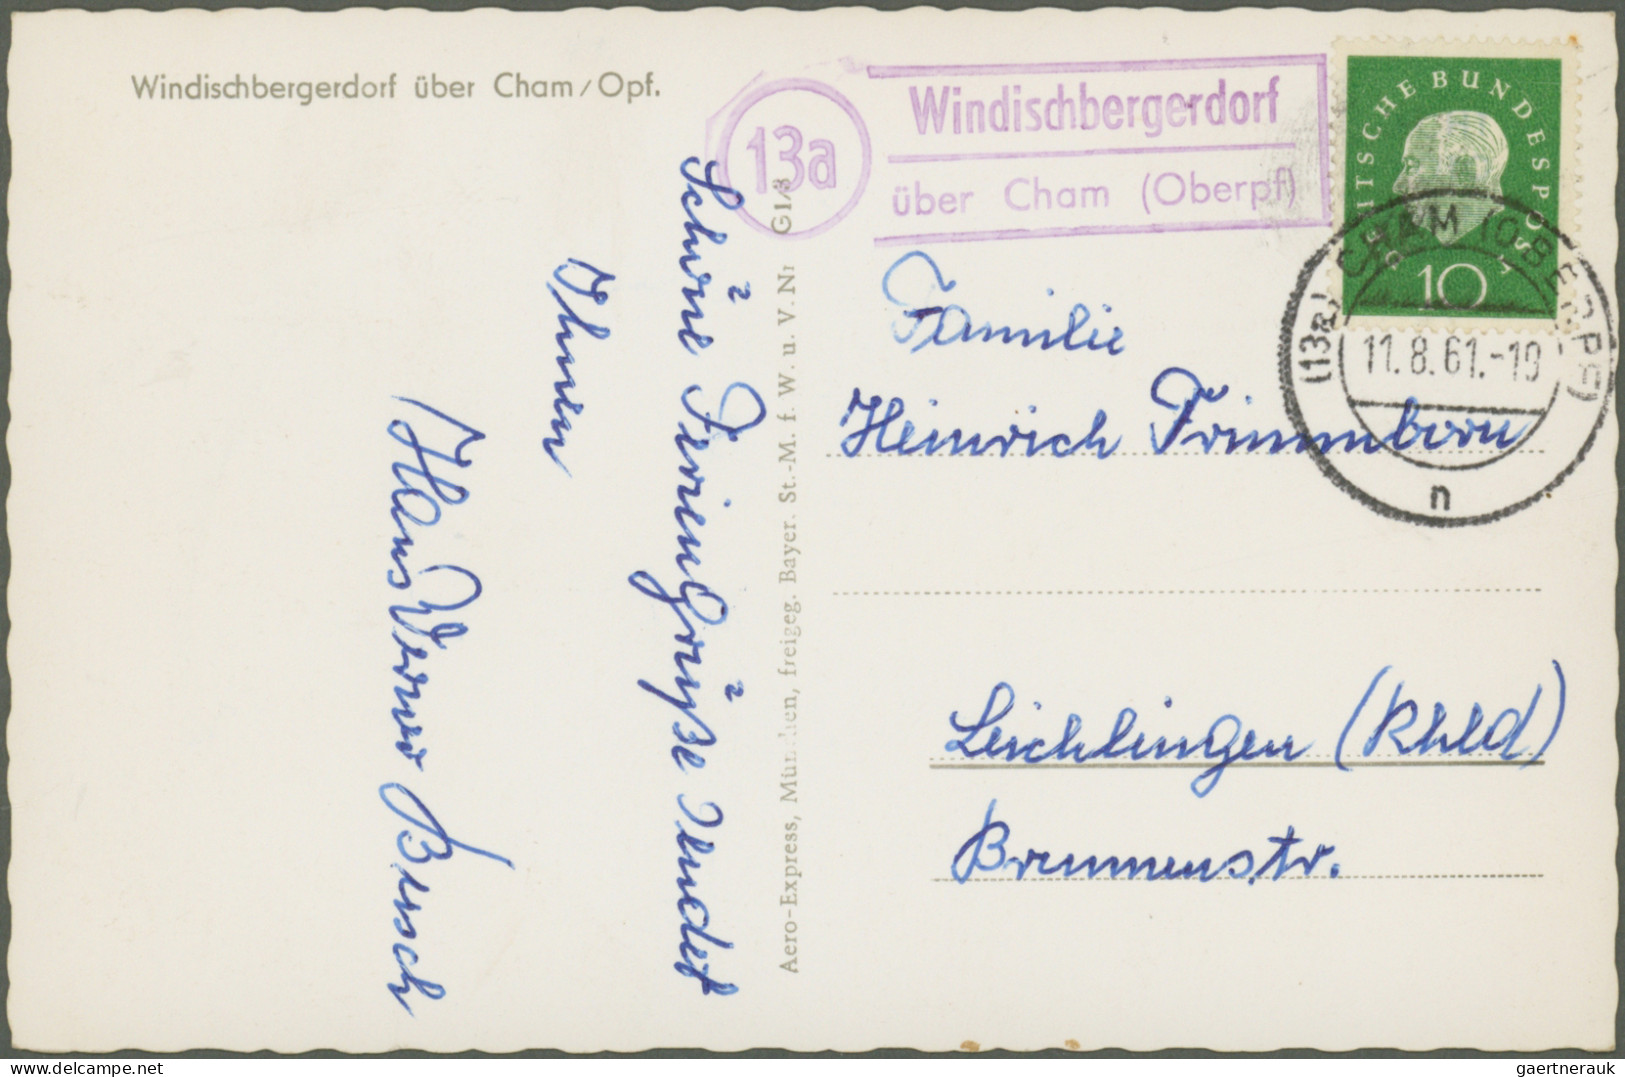 Windischbergerdorf über Cham/Opf.
13a
Windischbergerdorf
über Cham (Oberpf)
DEUTSCHE BUNDESPOST
10
(13a) CHAM (OBERPF)
11.8.61.-19
n
Schöne Feriengrüße sendet
Ihnen
Hans Werner Busch
Aero-Express, München, freigeg. Bayer. St.-M. f. W. u. V. Nr G1/3
Familie
Heinrich Trimmborn
Leichlingen (Rhld)
Brunnenstr.
gaertnerauk